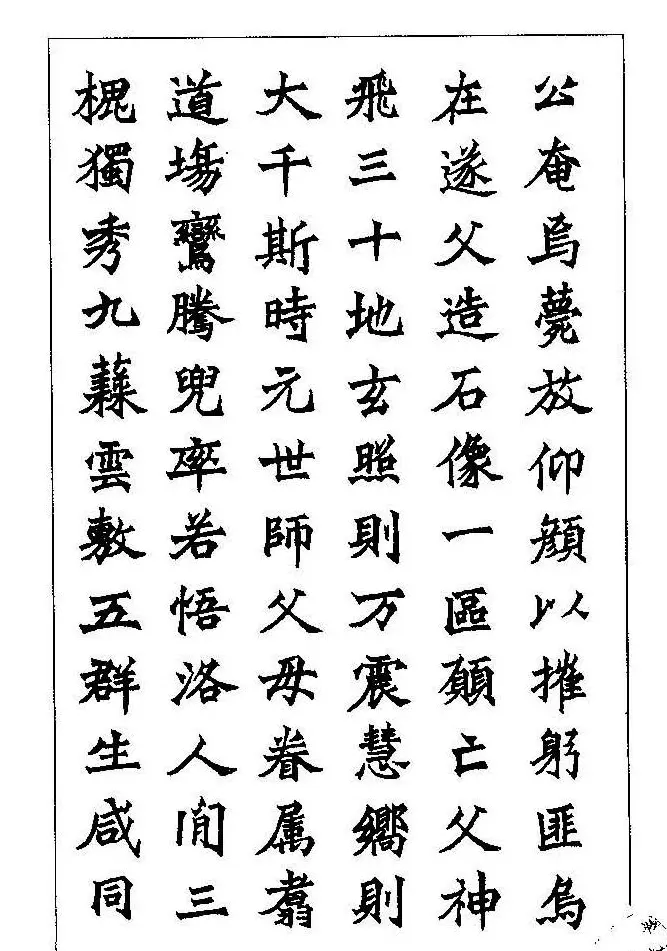 公奄焉薨放仰顏以摧躬匪烏
在遂父造石像一區願亡父神
飛三十地玄照則万震慧嚮則
大千斯時元世師父母眷属翥
道塲鸞騰兜率若悟洛人間三
槐獨秀九蕀雲敷五群生咸同